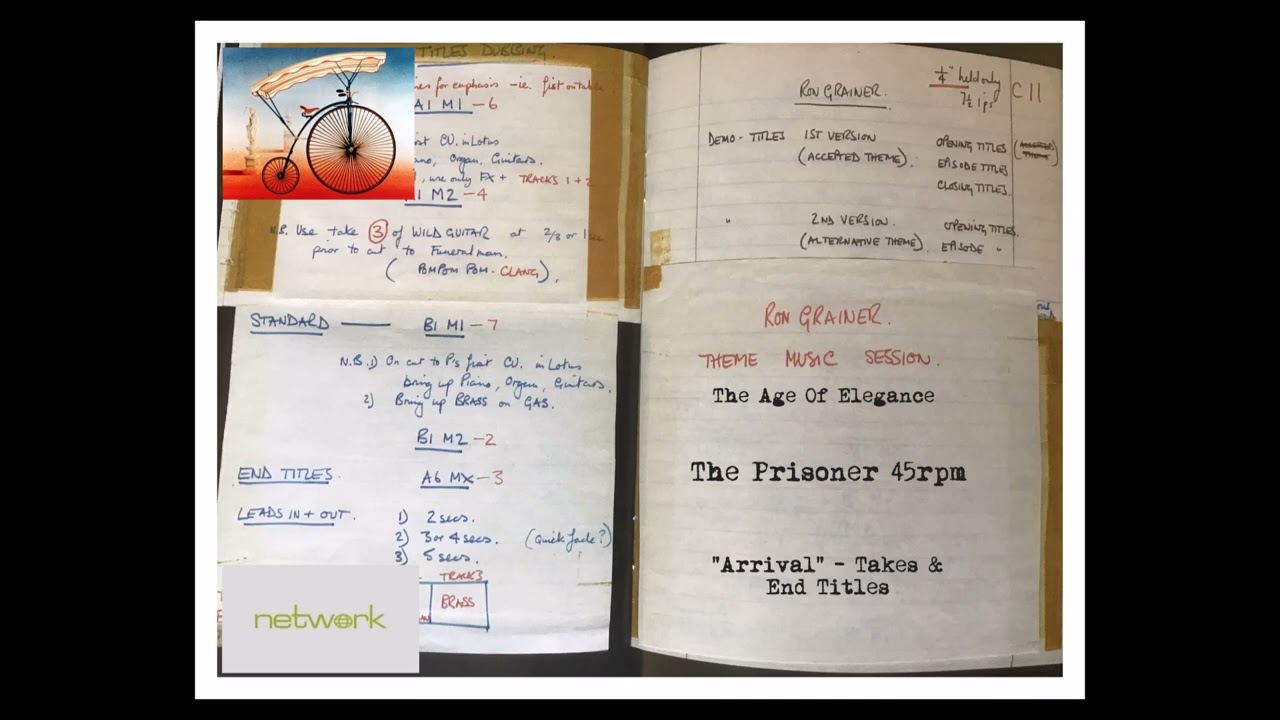 TITLES DUBBING
for emphasis - ie. fist on table
A1 M1 - 6
CU. in Lotus
Organ, Guitars.
, use only FX + TRACKS 1 + 2
M2 - 4
N.B. Use take 3 of WILD GUITAR at 2/3 or 1 sec
prior to cut to Funeral man.
(POM POM POM - CLANG).
STANDARD — B1 M1 - 7
N.B. 1) On cut to P's first CU. in Lotus
bring up Piano, Organ, Guitars.
2) Bring up BRASS on GAS.
B1 M2 - 2
END TITLES. A6 MX - 3
LEADS IN + OUT. 1) 2 secs.
2) 3 or 4 secs. (Quick fade?)
3) 5 secs.
TRACK 3
BRASS
network
RON GRAINER. 1/4" held only C11
7½ ips
DEMO - TITLES 1ST VERSION OPENING TITLES (ACCEPTED THEME)
(ACCEPTED THEME). EPISODE TITLES
CLOSING TITLES.
" 2ND VERSION. OPENING TITLES.
(ALTERNATIVE THEME). EPISODE "
RON GRAINER.
THEME MUSIC SESSION.
The Age Of Elegance
The Prisoner 45rpm
"Arrival" - Takes &
End Titles